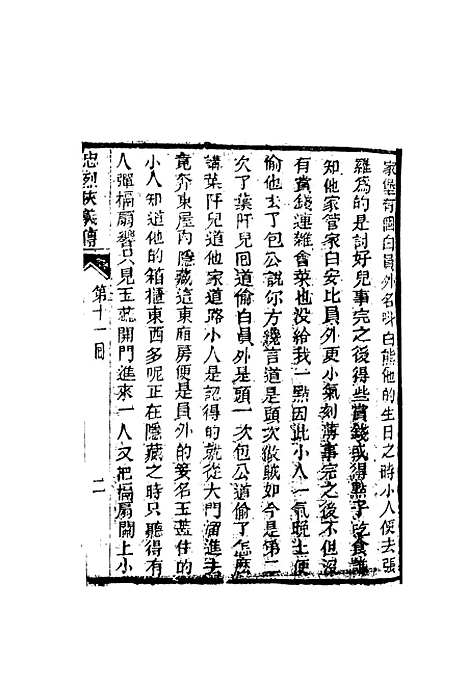 家堡有個白員外名叫白熊他的生日之時小人便去張
羅爲的是討好兒事完之後得些賞錢或得點子吃食誰
知他家管家白安比員外更小氣刻薄事完之後不但沒
有賞錢連雜會菜也没給我一點因此小人一氣晚上便
偷他去了包公說你方纔言道是頭次做賊如今是第二
次了葉阡兒回道偷白員外是頭一次包公道偷了怎麽
講葉阡兒道他家道路小人是認得的就從大門溜進去
竟奔東屋内隱藏這東廂房便是員外的妾名玉蕊住的
小人知道他的箱櫃東西多呢正在隱藏之時只聽得有
人彈槅扇響只見玉蕊開門進來一人又把槅扇關上小
忠烈俠義傳
第十一回
二